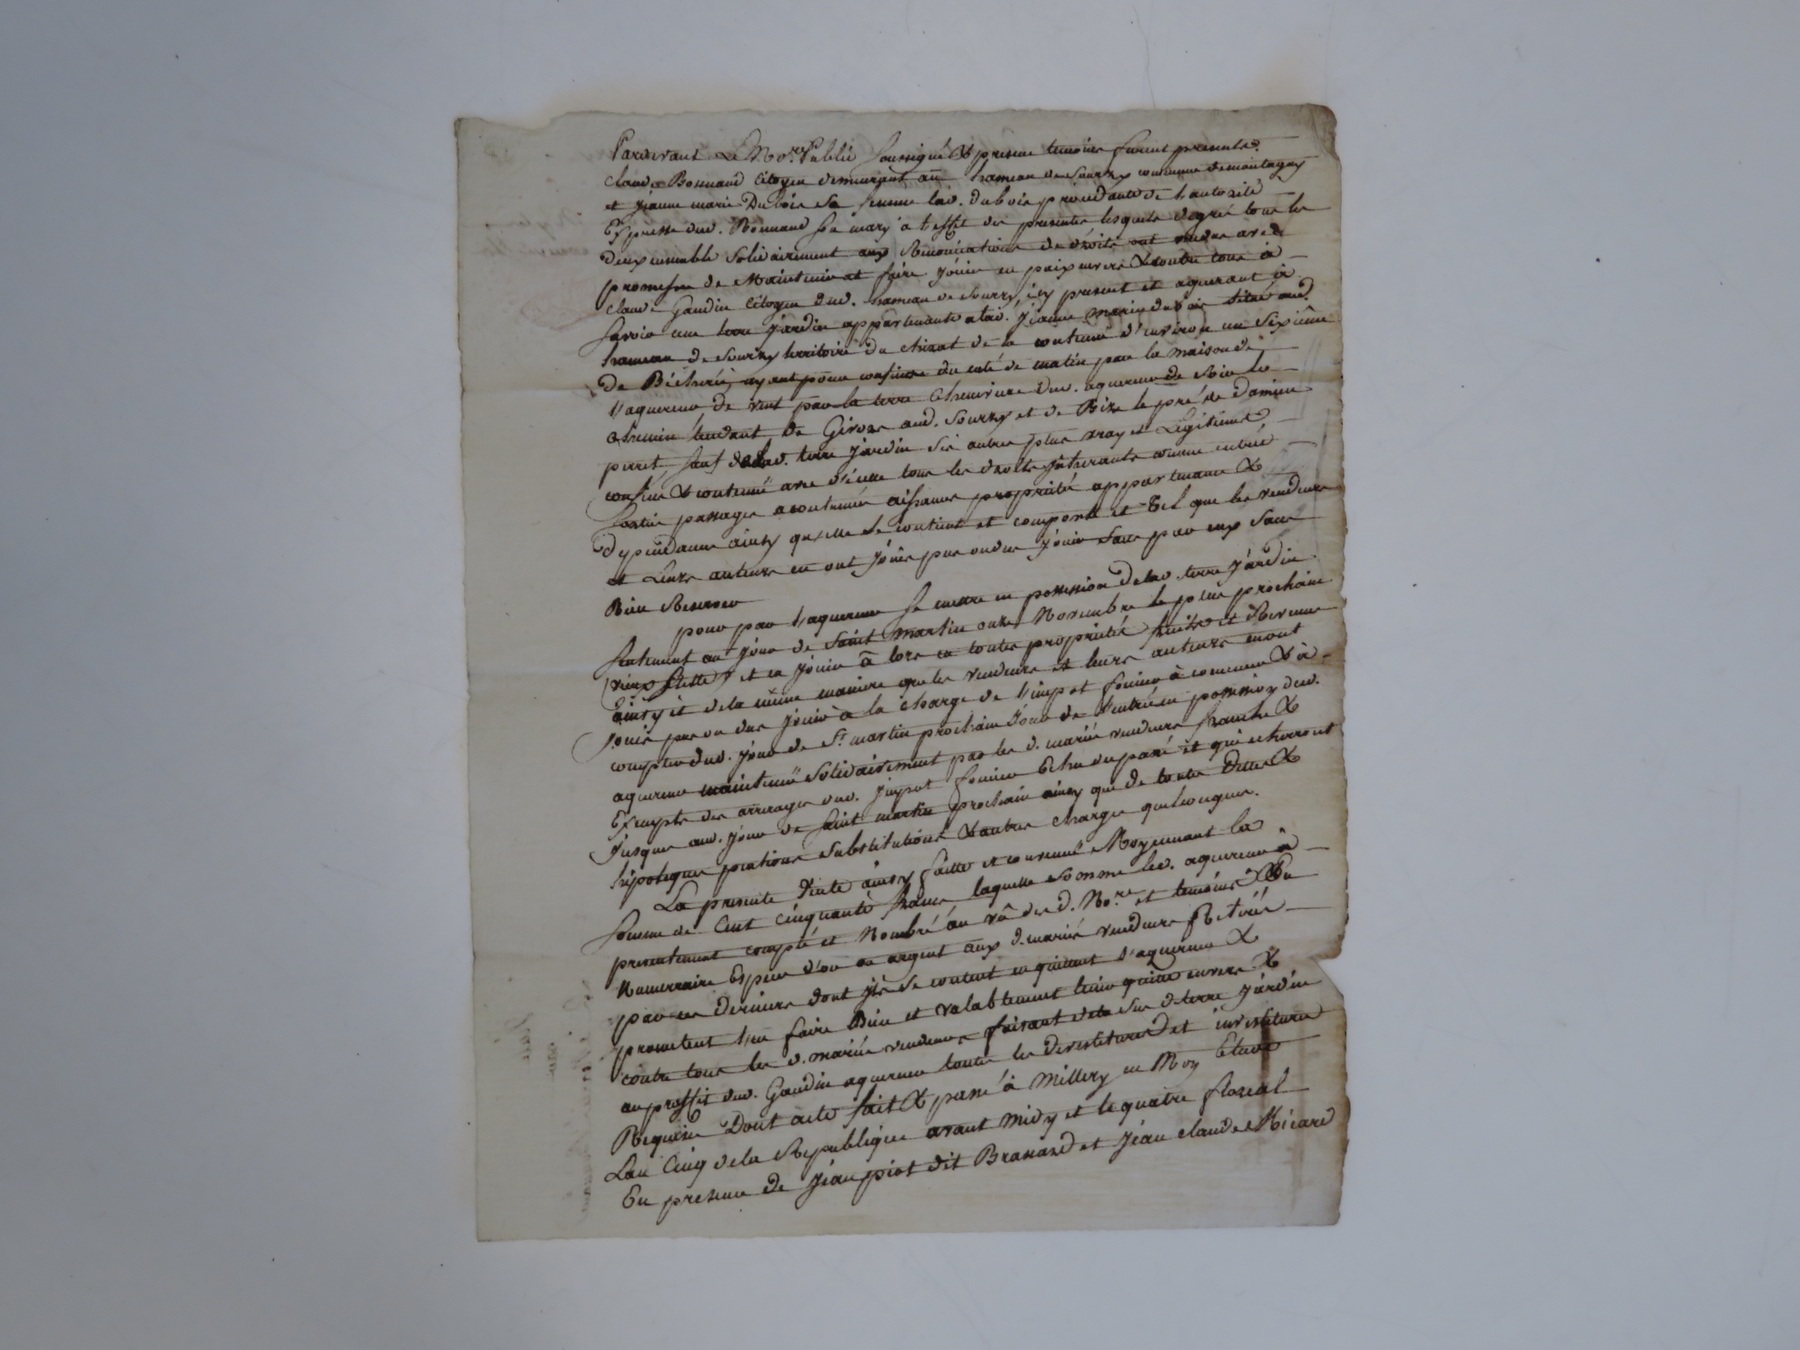 Pardevant Le No.re Public soussigné & presens temoins furent presents
claude Bonnand citoyen demeurant au hameau de Sourzy commune de montagny
et jeanne marie Dubois sa femme lad. dubois procedante de l'autorité
Expresse dud. Bonnand son mary a l'effet des presentes lesquels degré tous les
deux ensemble solidairement aux Renonciations de droits ont vendu avec
promesse de Maintenir et faire jouir en paix envers & contre tous à
claude Gaudin citoyen dud. hameau de Sourzy, icy present et aquerant à
savoir une terre jardin appartenante a lad. jeanne marie dubois située aud.
hameau de Sourzy territoire du chirat de la contenue d'environ un sixième
de Bicherée, ayant pour confins du coté de matin par la maison de
l'aquereur de vent par la terre chenevière dud. aquereur de soir le
chemin tendant de Givors aud. Sourzy et de Bize le pré de damien
perret, sauf de lad. terre jardin ses autres plus vray et Légitimes
confins & contenue avec d'icelle tous les droits inherants comme entrée
sortie passages acoutumés aisances propriété appartenance &
dependance ainsy quelle se contient et comporte et tel que les vendeurs
et Leurs auteurs en ont jouis pus ou du jouir sans par eux sans
Rien Reserver
pour par l'aquereur se mettre en possession de lad. terre jardin
seulement au jour de saint martin onze Novembre le plus prochain
(vieux stille) et en jouir a lors en toute propriété fruits et Revenus
ainsy et de la même manière que les vendeurs et leurs auteurs en ont
jouis pus ou dus jouir à la charge de l'impot foncier à commencer & à
compter dud. jour de St. martin prochain jour de l'entrée en possession dud.
aquereur maintenu solidairement par les d. mariés vendeurs franche &
Exempte des arrerages dud. impot foncier Echu du passé et qui echerront
jusques aud. jour de saint martin prochain ainsy que de toutes dettes &
hipoteques pensions substitutions & autres charges quelconques.
La presente Vente ainsy faitte et convenue Moyennant la
somme de Cent cinquante francs laquelle somme led. aquereur a
presentement compté et Nombré au vû des d. No.re et temoins En
Numerraire Espece d'or ou argent aux d. mariés vendeurs Retirée
par ces derniers dont ils se contentent en quittent l'aquereur &
promettent l'en faire Bien et valablement tenir quitte envers &
contre tous les d. mariés vendeurs faisant de la susd. terre jardin
au proffit dud. Gaudin aquereur toutes les devestitures et investitures
Requises Dont acte fait & passé à Millery en Mon Etude
Lan Cinq de la Republique avant midy et le quatre floreal
En presence de Jean piot dit Brassard et Jean claude Ricard